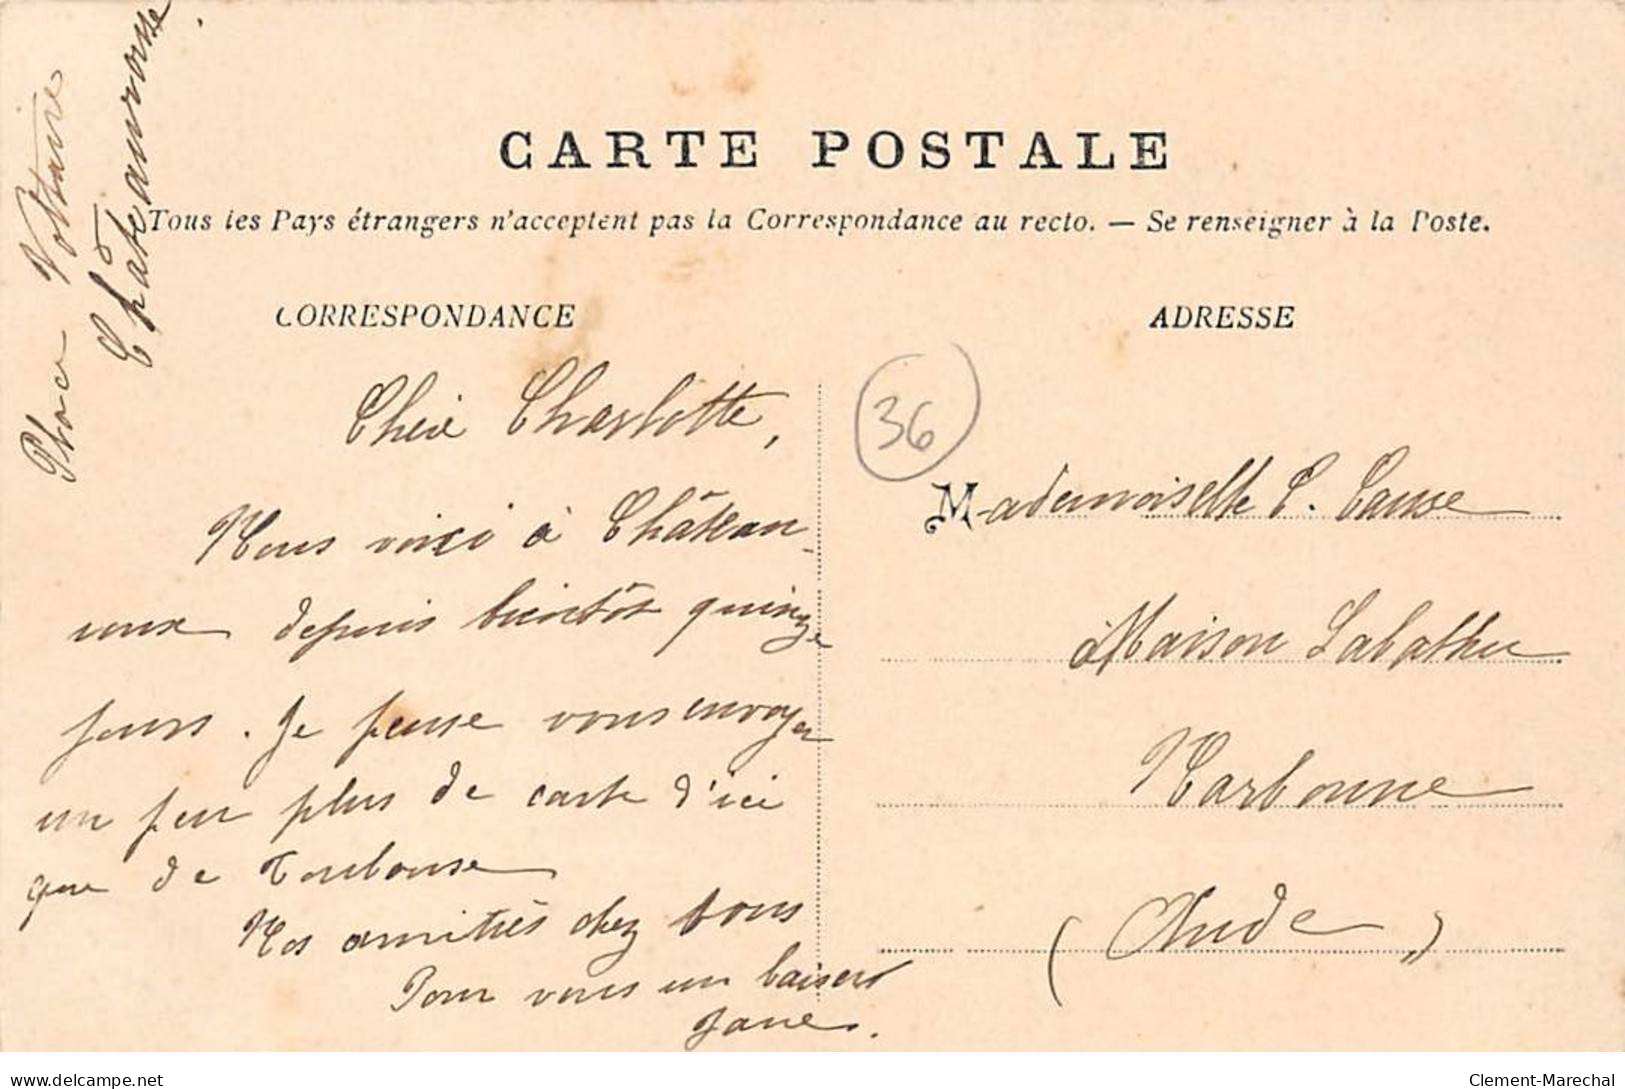 Place Voltaire
Châteauroux
CARTE POSTALE
Tous les Pays étrangers n'acceptent pas la Correspondance au recto. — Se renseigner à la Poste.
CORRESPONDANCE
Chère Charlotte,
Nous voici à Château-
roux depuis bientôt quinze
jours. Je pense vous envoyer
un peu plus de carte d'ici
que de Toulouse
Nos amitiés chez vous
Pour vous un baiser
Jane.
ADRESSE
36
Mademoiselle C. Causse
Maison Labathu
Narbonne
(Aude)
delcampe.net
Clement-Marechal